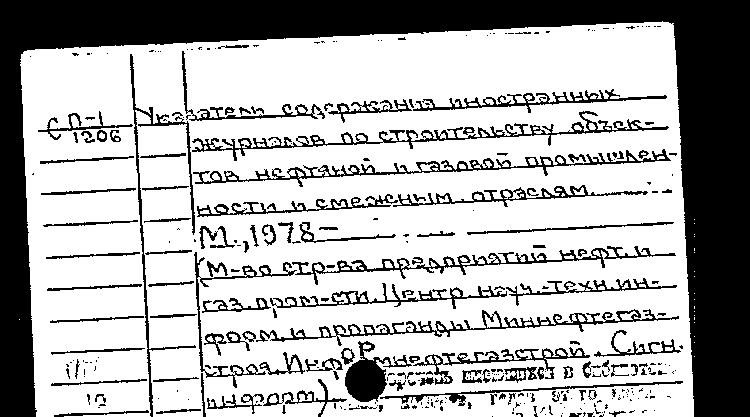 СП-1 Указатель содержания иностранных
1206 журналов по строительству объек-
тов нефтяной и газовой промышлен-
ности и смежным отраслям.
М., 1978 –
(М-во стр-ва предприятий нефт. и
газ. пром-сти. Центр. науч.-техн. ин-
форм. и пропаганды Миннефтегаз-
строя. Информнефтегазстрой. Сигн.
информ.)
имеющихся в библиотеке
10